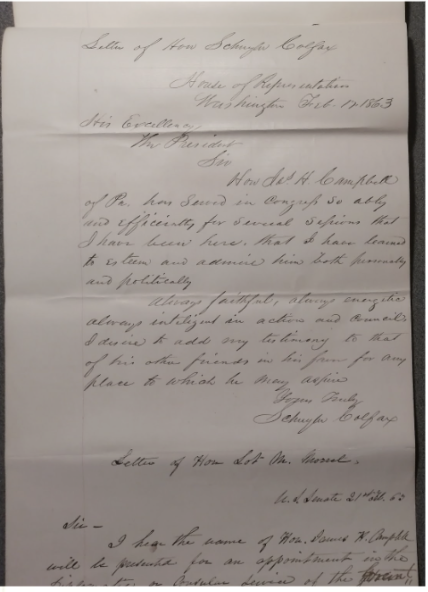 Letter of Hon Schuyler Colfax
House of Representation
Washington Feb. 12 1863
His Excellency,
The President
Sir
Hon Jas H. Campbell
of Pa. has served in Congress so ably
and efficiently for several sessions that
I have been here. that I have learned
to esteem and admire him both personally
and politically
Always faithful, always energetic
always intelligent in action and council
I desire to add my testimony to that
of his other friends in his favor for any
place to which he may aspire
Yours Truly
Schuyler Colfax
Letter of Hon Lot M. Morrill.
U.S. Senate 21st Feb. 63
Sir –
I hear the name of Hon. James H. Campbell
will be presented for an appointment in the
Diplomatic or Consular Service of the